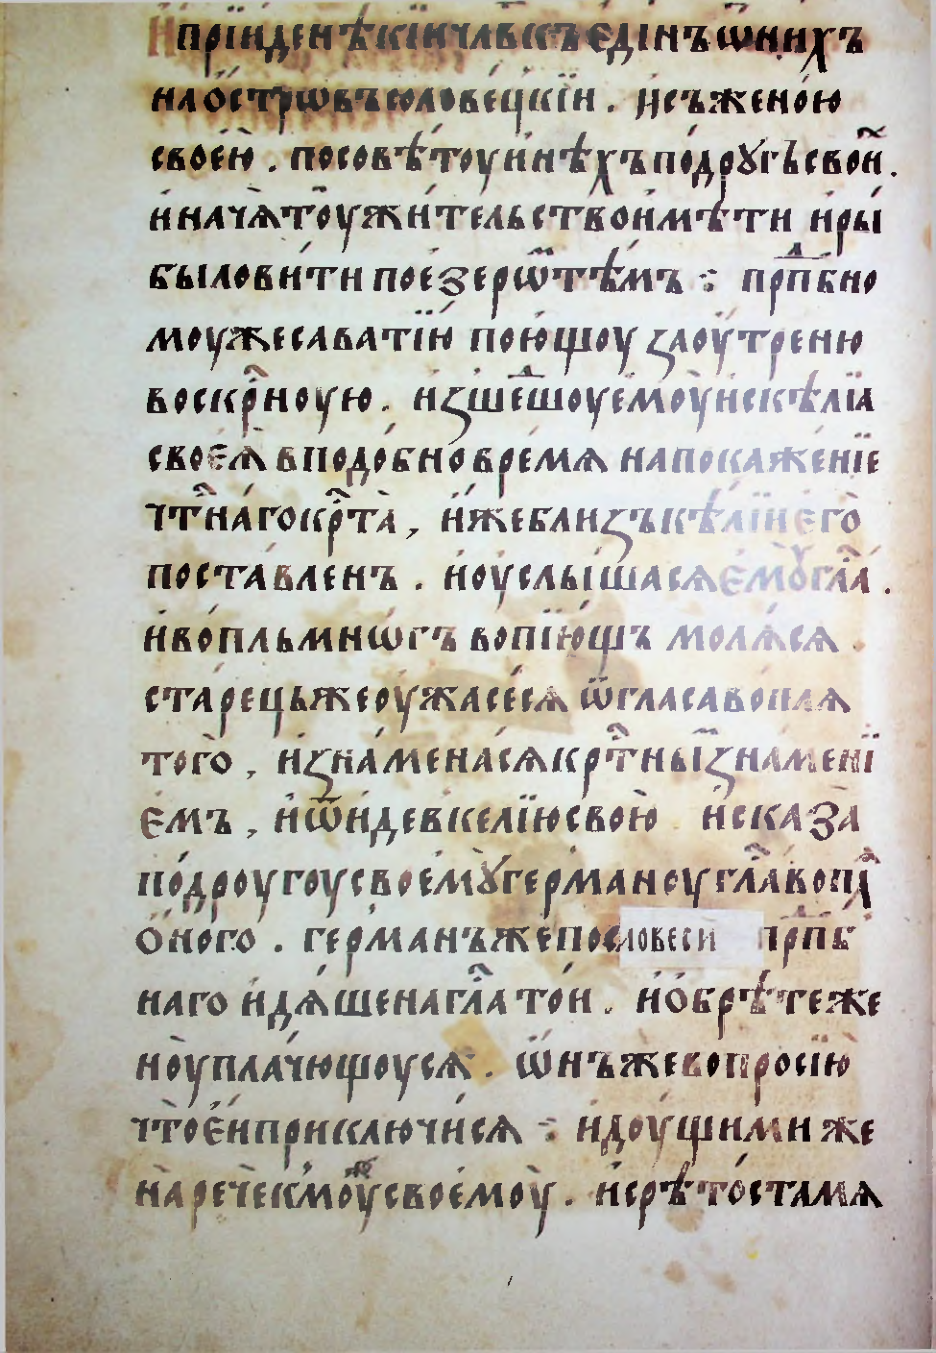 И прїиде нѣкїи чл҃вкъ є҆ди́нъ ѿ ни́хъ
на о́стровъ соловецкїи . и҆ съ жено́ю
свое́ю . по сове́тоу и҆нѣ́хъ подрꙋгъ свои̑ .
и҆ нача̀ то̑у жи́тельство имѣ́ти и҆ ры́
бы лови́ти по е҆зеро̑ тѣ́мъ : прп҃бно
моу же саватїю̀ пою́щоу заоу́треню
воскр҇ноую . и҆зше́дшоу є҆моу̀ ис кѣ́лїа
своеѧ̀ в подо́бно вре́мѧ на покаже́нїе
чт҇на́го кр҇та̀ , и҆́же близъ кѣ́лїи є҆го̀
поста́вленъ . и҆ оуслы́шасѧ є҆мꙋ̀ гл҇а .
и҆ во́пль мнѡ́гъ вопїю́щь молѧ́сѧ
ста́рець же оу҆жасе́сѧ ѿ гласа во́плѧ
того̀ , и҆ зна́менасѧ кр҇тны̑ зна́менї
є҆мъ , и҆ ѿи́де в ке́лїю свою̀ и҆ сказа̀
по́дроугоу своемꙋ̀ герма́ноу гл҇а во́плѧ
ѻ҆́ного . ге́рманъ же по словеси прп҃б
наго и҆дѧ́ше на гл҇а то́и . и҆ ѻ҆брѣ́те же
ноу̀ пла́чющоусѧ . ѡ҆́нъ же вопросѝ ю҆̀
что̀ є҆́и приключи́сѧ : и҆доу́щи ми же
на̀ рече к мо́ужоу своемоу̀ . и҆ срѣ́тоста мѧ